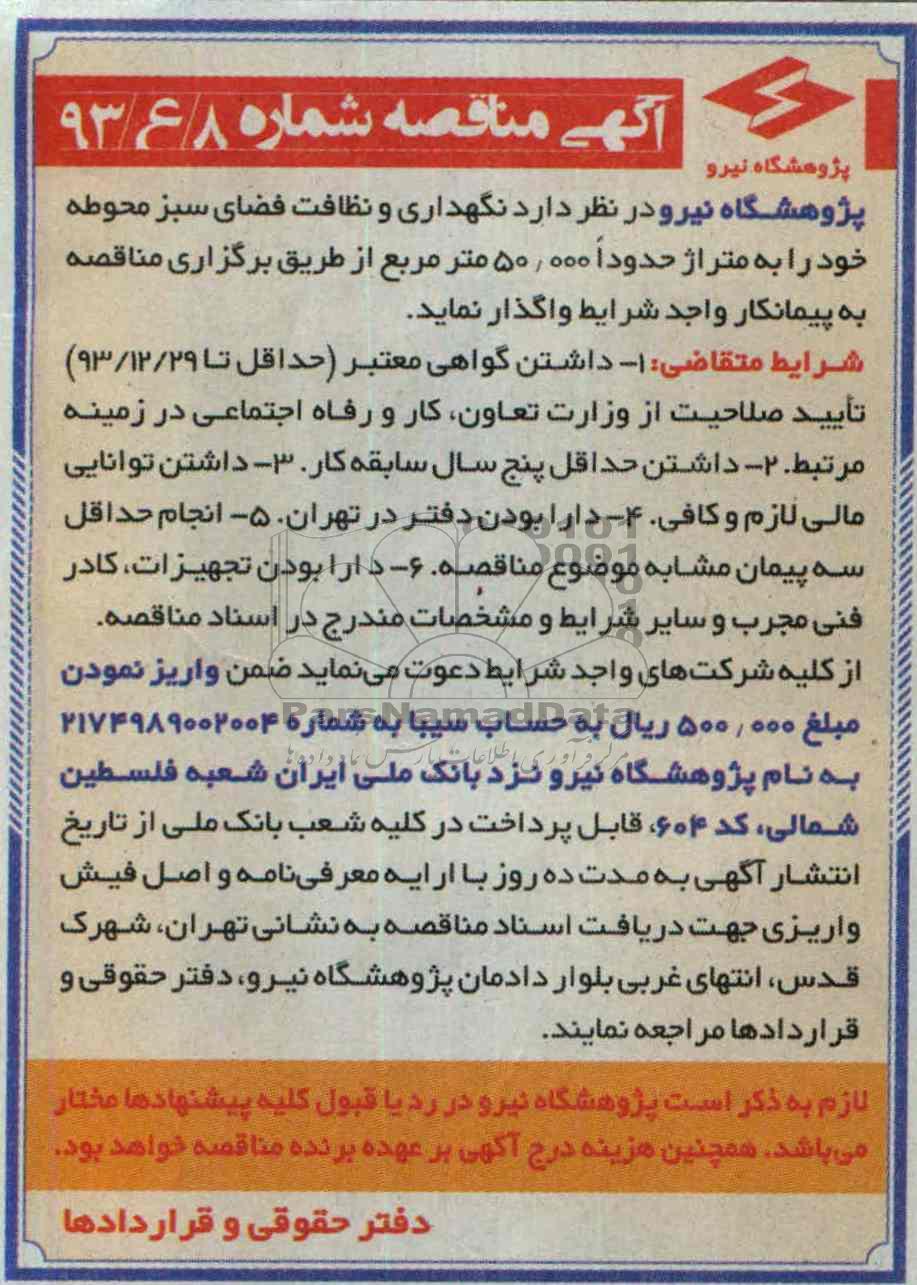 آگهی مناقصه شماره ۸/ع/۹۳
پژوهشگاه نیرو
پژوهشگاه نیرو در نظر دارد نگهداری و نظافت فضای سبز محوطه
خود را به متراژ حدوداً ۵۰٫۰۰۰ متر مربع از طریق برگزاری مناقصه
به پیمانکار واجد شرایط واگذار نماید.
شرایط متقاضی: ۱- داشتن گواهی معتبر (حداقل تا ۹۳/۱۲/۲۹)
تأیید صلاحیت از وزارت تعاون، کار و رفاه اجتماعی در زمینه
مرتبط. ۲- داشتن حداقل پنج سال سابقه کار. ۳- داشتن توانایی
مالی لازم و کافی. ۴- دارا بودن دفتر در تهران. ۵- انجام حداقل
سه پیمان مشابه موضوع مناقصه. ۶- دارا بودن تجهیزات، کادر
فنی مجرب و سایر شرایط و مشخصات مندرج در اسناد مناقصه.
از کلیه شرکت‌های واجد شرایط دعوت می‌نماید ضمن واریز نمودن
مبلغ ۵۰۰٫۰۰۰ ریال به حساب سیبا به شماره ۲۱۷۴۹۸۹۰۰۲۰۰۴
به نام پژوهشگاه نیرو نزد بانک ملی ایران شعبه فلسطین
شمالی، کد ۶۰۴، قابل پرداخت در کلیه شعب بانک ملی از تاریخ
انتشار آگهی به مدت ده روز با ارایه معرفی‌نامه و اصل فیش
واریزی جهت دریافت اسناد مناقصه به نشانی تهران، شهرک
قدس، انتهای غربی بلوار دادمان پژوهشگاه نیرو، دفتر حقوقی و
قراردادها مراجعه نمایند.
لازم به ذکر است پژوهشگاه نیرو در رد یا قبول کلیه پیشنهادها مختار
می‌باشد. همچنین هزینه درج آگهی بر عهده برنده مناقصه خواهد بود.
دفتر حقوقی و قراردادها
ParsNamadData